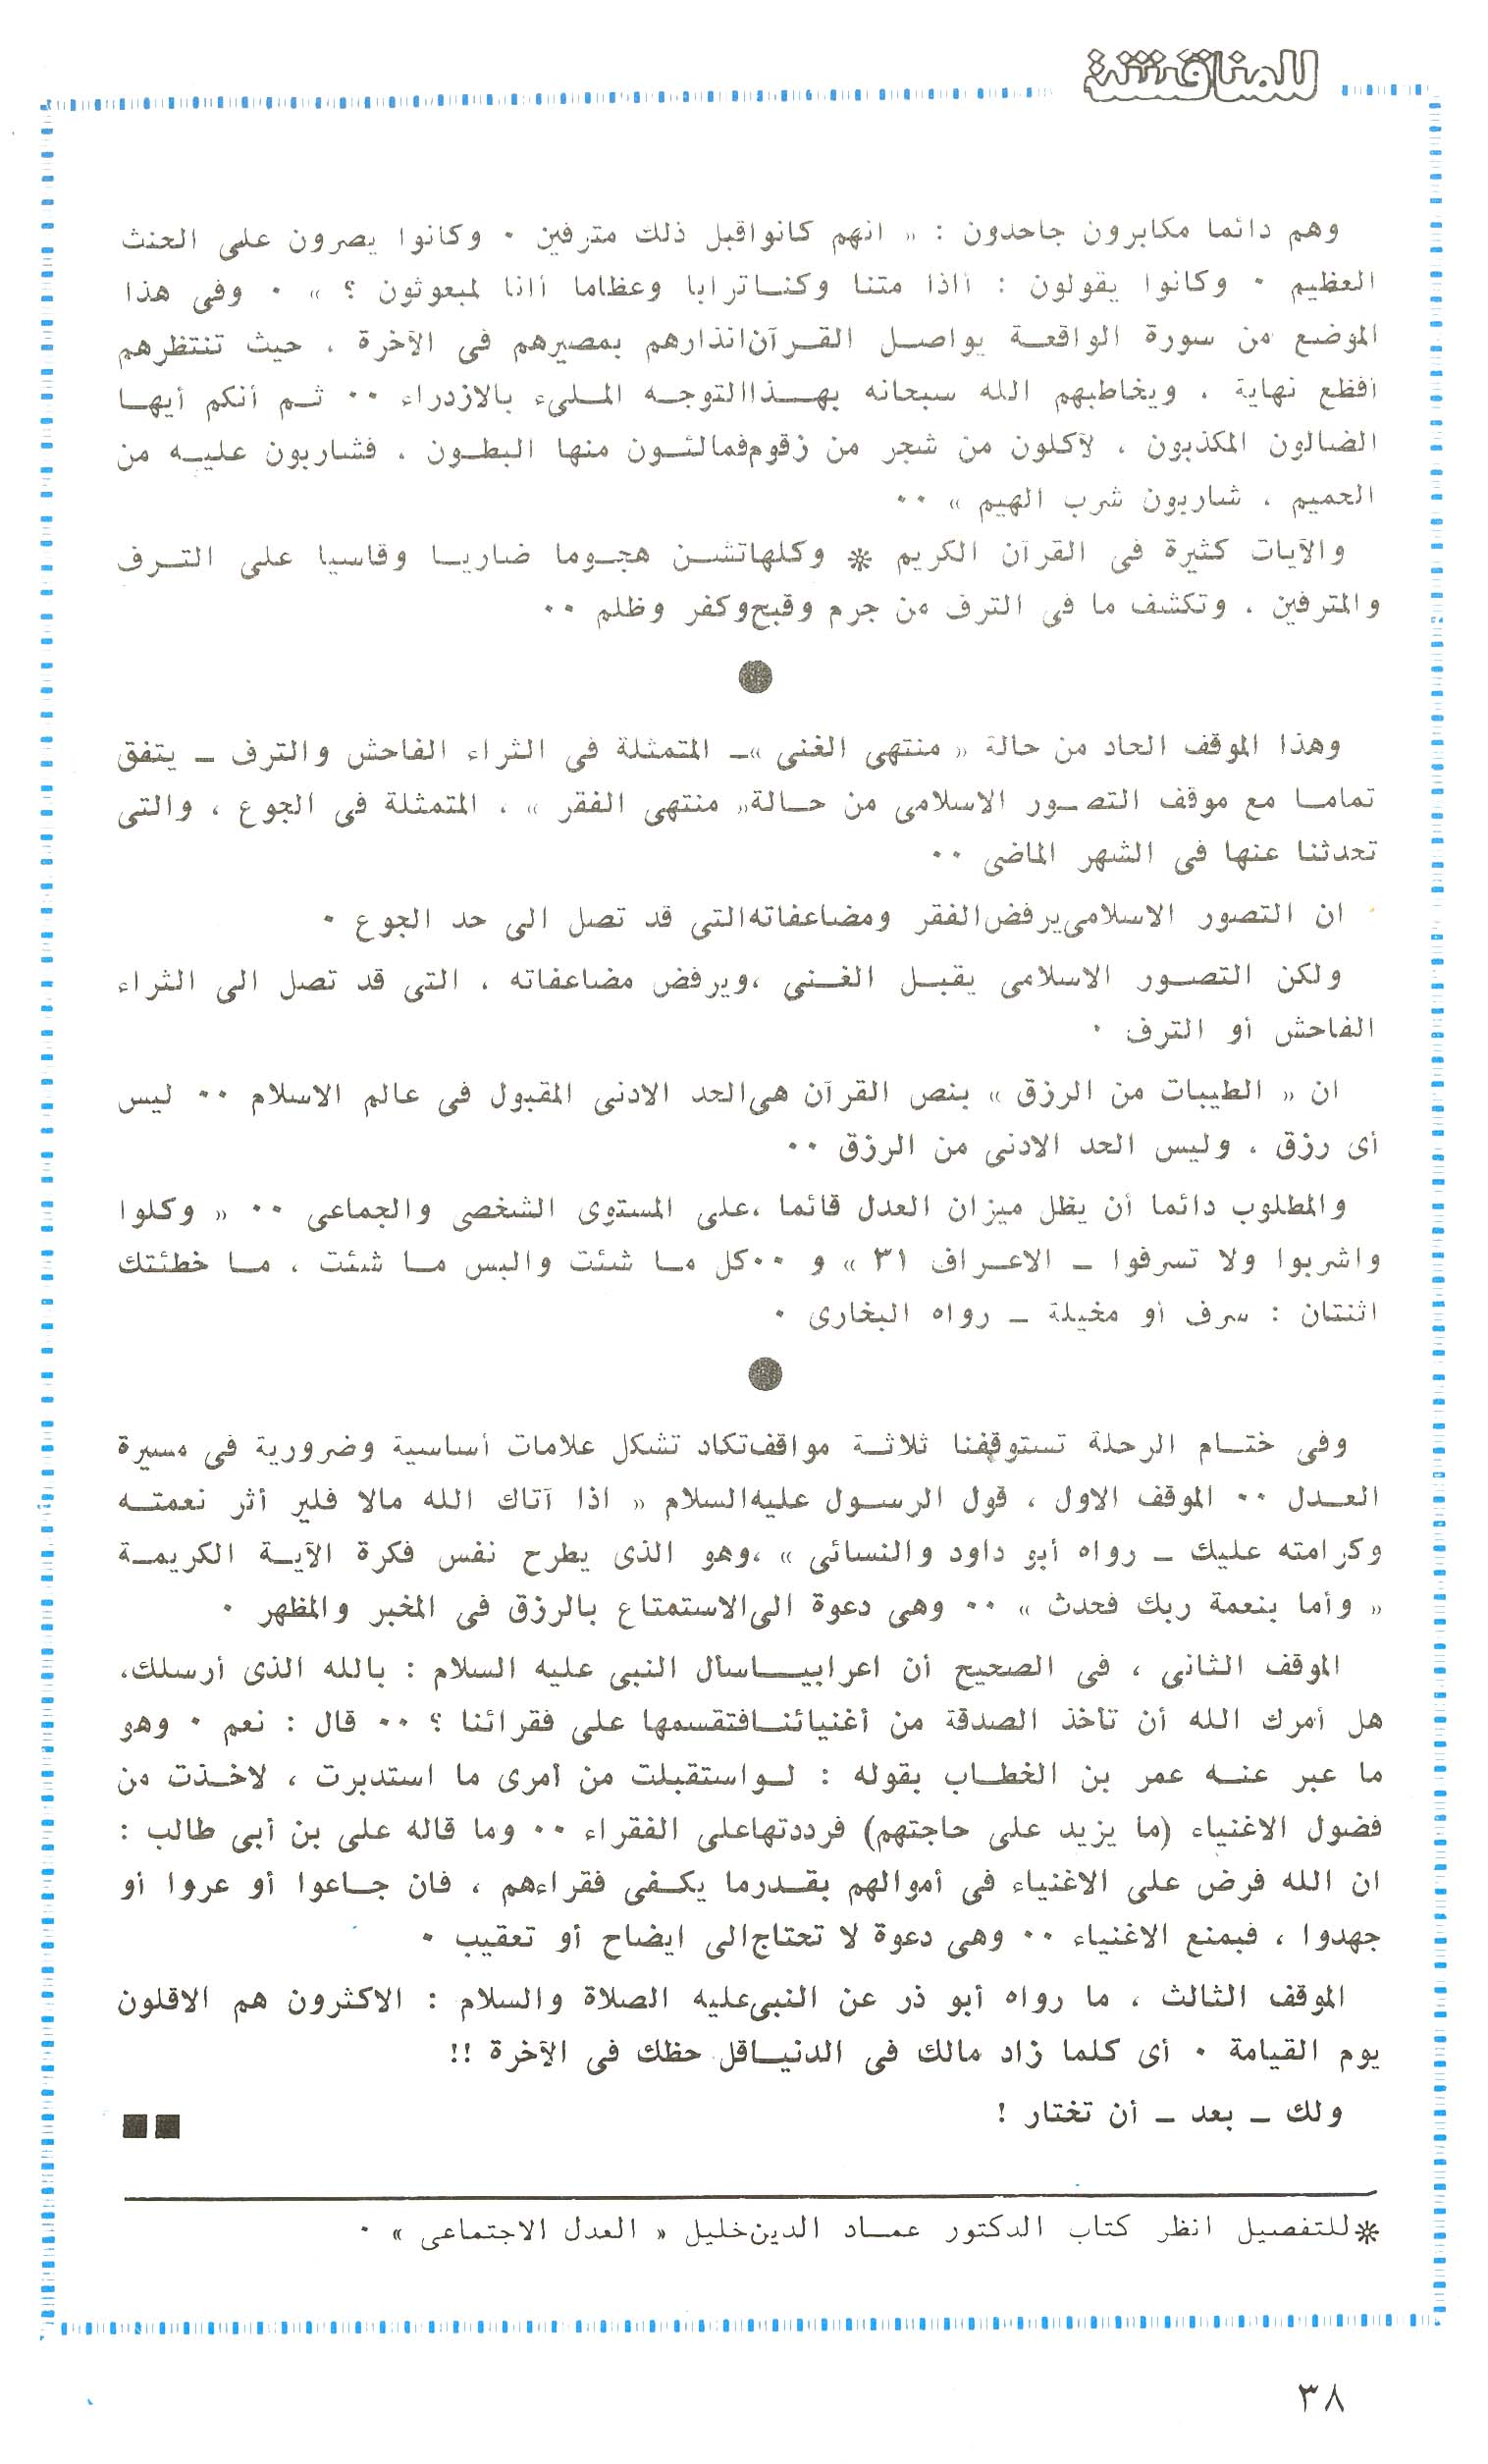 للمناقشة
وهم دائما مكابرون جاحدون : « انهم كانوا قبل ذلك مترفين ٠ وكانوا يصرون على الحنث
العظيم ٠ وكانوا يقولون : أاذا متنا وكنا ترابا وعظاما أانا لمبعوثون ؟ » ٠ وفى هذا
الموضع من سورة الواقعة يواصل القرآن انذارهم بمصيرهم فى الآخرة ، حيث تنتظرهم
أفظع نهاية ، ويخاطبهم الله سبحانه بهذا التوجه الملىء بالازدراء ٠٠ ثم أنكم أيها
الضالون المكذبون ، لآكلون من شجر من زقوم فمالئون منها البطون ، فشاربون عليه من
الحميم ، شاربون شرب الهيم » ٠٠
والآيات كثيرة فى القرآن الكريم * وكلها تشن هجوما ضاريا وقاسيا على الترف
والمترفين ، وتكشف ما فى الترف من جرم وقبح وكفر وظلم ٠٠
وهذا الموقف الحاد من حالة « منتهى الغنى » ـ المتمثلة فى الثراء الفاحش والترف ـ يتفق
تماما مع موقف التصور الاسلامى من حالة « منتهى الفقر » ، المتمثلة فى الجوع ، والتى
تحدثنا عنها فى الشهر الماضى ٠٠
ان التصور الاسلامى يرفض الفقر ومضاعفاته التى قد تصل الى حد الجوع ٠
ولكن التصور الاسلامى يقبل الغنى ، ويرفض مضاعفاته ، التى قد تصل الى الثراء
الفاحش أو الترف ٠
ان « الطيبات من الرزق » بنص القرآن هى الحد الادنى المقبول فى عالم الاسلام ٠٠ ليس
أى رزق ، وليس الحد الادنى من الرزق ٠٠
والمطلوب دائما أن يظل ميزان العدل قائما ، على المستوى الشخصى والجماعى ٠٠ « وكلوا
واشربوا ولا تسرفوا ـ الاعراف ٣١ » و ٠٠ كل ما شئت والبس ما شئت ، ما خطئتك
اثنتان : سرف أو مخيلة ـ رواه البخارى ٠
وفى ختام الرحلة تستوقفنا ثلاثة مواقف تكاد تشكل علامات أساسية وضرورية فى مسيرة
العدل ٠٠ الموقف الاول ، قول الرسول عليه السلام « اذا آتاك الله مالا فلير أثر نعمته
وكرامته عليك ـ رواه أبو داود والنسائى » ، وهو الذى يطرح نفس فكرة الآية الكريمة
« وأما بنعمة ربك فحدث » ٠٠ وهى دعوة الى الاستمتاع بالرزق فى المخبر والمظهر ٠
الموقف الثانى ، فى الصحيح أن اعرابيا سأل النبى عليه السلام : بالله الذى أرسلك،
هل أمرك الله أن تأخذ الصدقة من أغنيائنا فتقسمها على فقرائنا ؟ ٠٠ قال : نعم ٠ وهو
ما عبر عنه عمر بن الخطاب بقوله : لو استقبلت من أمرى ما استدبرت ، لاخذت من
فضول الاغنياء (ما يزيد على حاجتهم) فرددتها على الفقراء ٠٠ وما قاله على بن أبى طالب :
ان الله فرض على الاغنياء فى أموالهم بقدر ما يكفى فقراءهم ، فان جاعوا أو عروا أو
جهدوا ، فبمنع الاغنياء ٠٠ وهى دعوة لا تحتاج الى ايضاح أو تعقيب ٠
الموقف الثالث ، ما رواه أبو ذر عن النبى عليه الصلاة والسلام : الاكثرون هم الاقلون
يوم القيامة ٠ أى كلما زاد مالك فى الدنيا قل حظك فى الآخرة !!
ولك ـ بعد ـ أن تختار !
* للتفصيل انظر كتاب الدكتور عماد الدين خليل « العدل الاجتماعى » ٠
٣٨